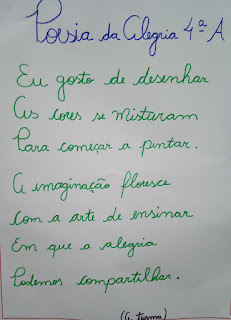 Poesia da Alegria 4ª A
Eu gosto de desenhar
As cores se misturam
Para começar a pintar.
A imaginação floresce
com a arte de ensinar
Em que a alegria
Podemos compartilhar.
(A turma)